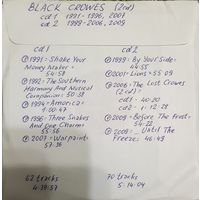 BLACK CROWES (2cd)
cd 1 1991-1996, 2007
cd 2 1999-2006, 2009
cd 1
① 1991 = Shake Your
Money Maker =
54:57
② 1992 = The Southern
Harmony And Musical
Companion = 50:38
③ 1994 = America =
1:00:47
④ 1996 = Three Snakes
And One Charm =
55:56
⑤ 2007 = Warpaint =
57:36
62 tracks
4:39:57
cd 2
① 1999 = By Your Side =
44:55
② 2001 = Lions = 55:09
③ 2006 = The Lost Crowes
(2cd) =
cd1 - 40:20
cd2 - 1:12:28
④ 2009 = Before The Frost =
54:22
⑤ 2009 = ... Until The
Freeze = 46:49
70 tracks
5:14:04